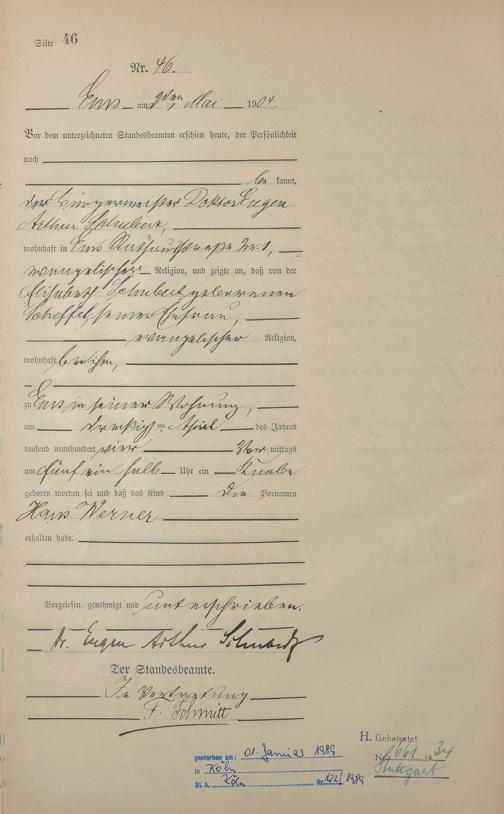 Seite 46
Nr. 46.
Ems am 9ten Mai 1904.
Vor dem unterzeichneten Standesbeamten erschien heute, der Persönlichkeit
nach
be kannt,
der Bürgermeister Doktor Eugen
Arthur Schubert,
wohnhaft in Ems Rathausstraße Nr. 1,
evangelischer Religion, und zeigte an, daß von der
Elisabeth Schubert geborenen
Scheffel seiner Ehefrau,
evangelischer Religion,
wohnhaft bei ihm,
zu Ems in seiner Wohnung,
am dreißigsten April des Jahres
tausend neunhundert vier Vor mittags
um fünf ein halb Uhr ein Knabe
geboren worden sei und daß das Kind die Vornamen
Hans Werner
erhalten habe.
Vorgelesen, genehmigt und unterschrieben.
Dr. Eugen Arthur Schubert
Der Standesbeamte.
In Vertretung
F. Schmitt
gestorben am: 01. Januar 1989
in Köln
St. A. Köln Nr. 122/1989
H. Geheiratet
Nr. 661 1934
Stuttgart